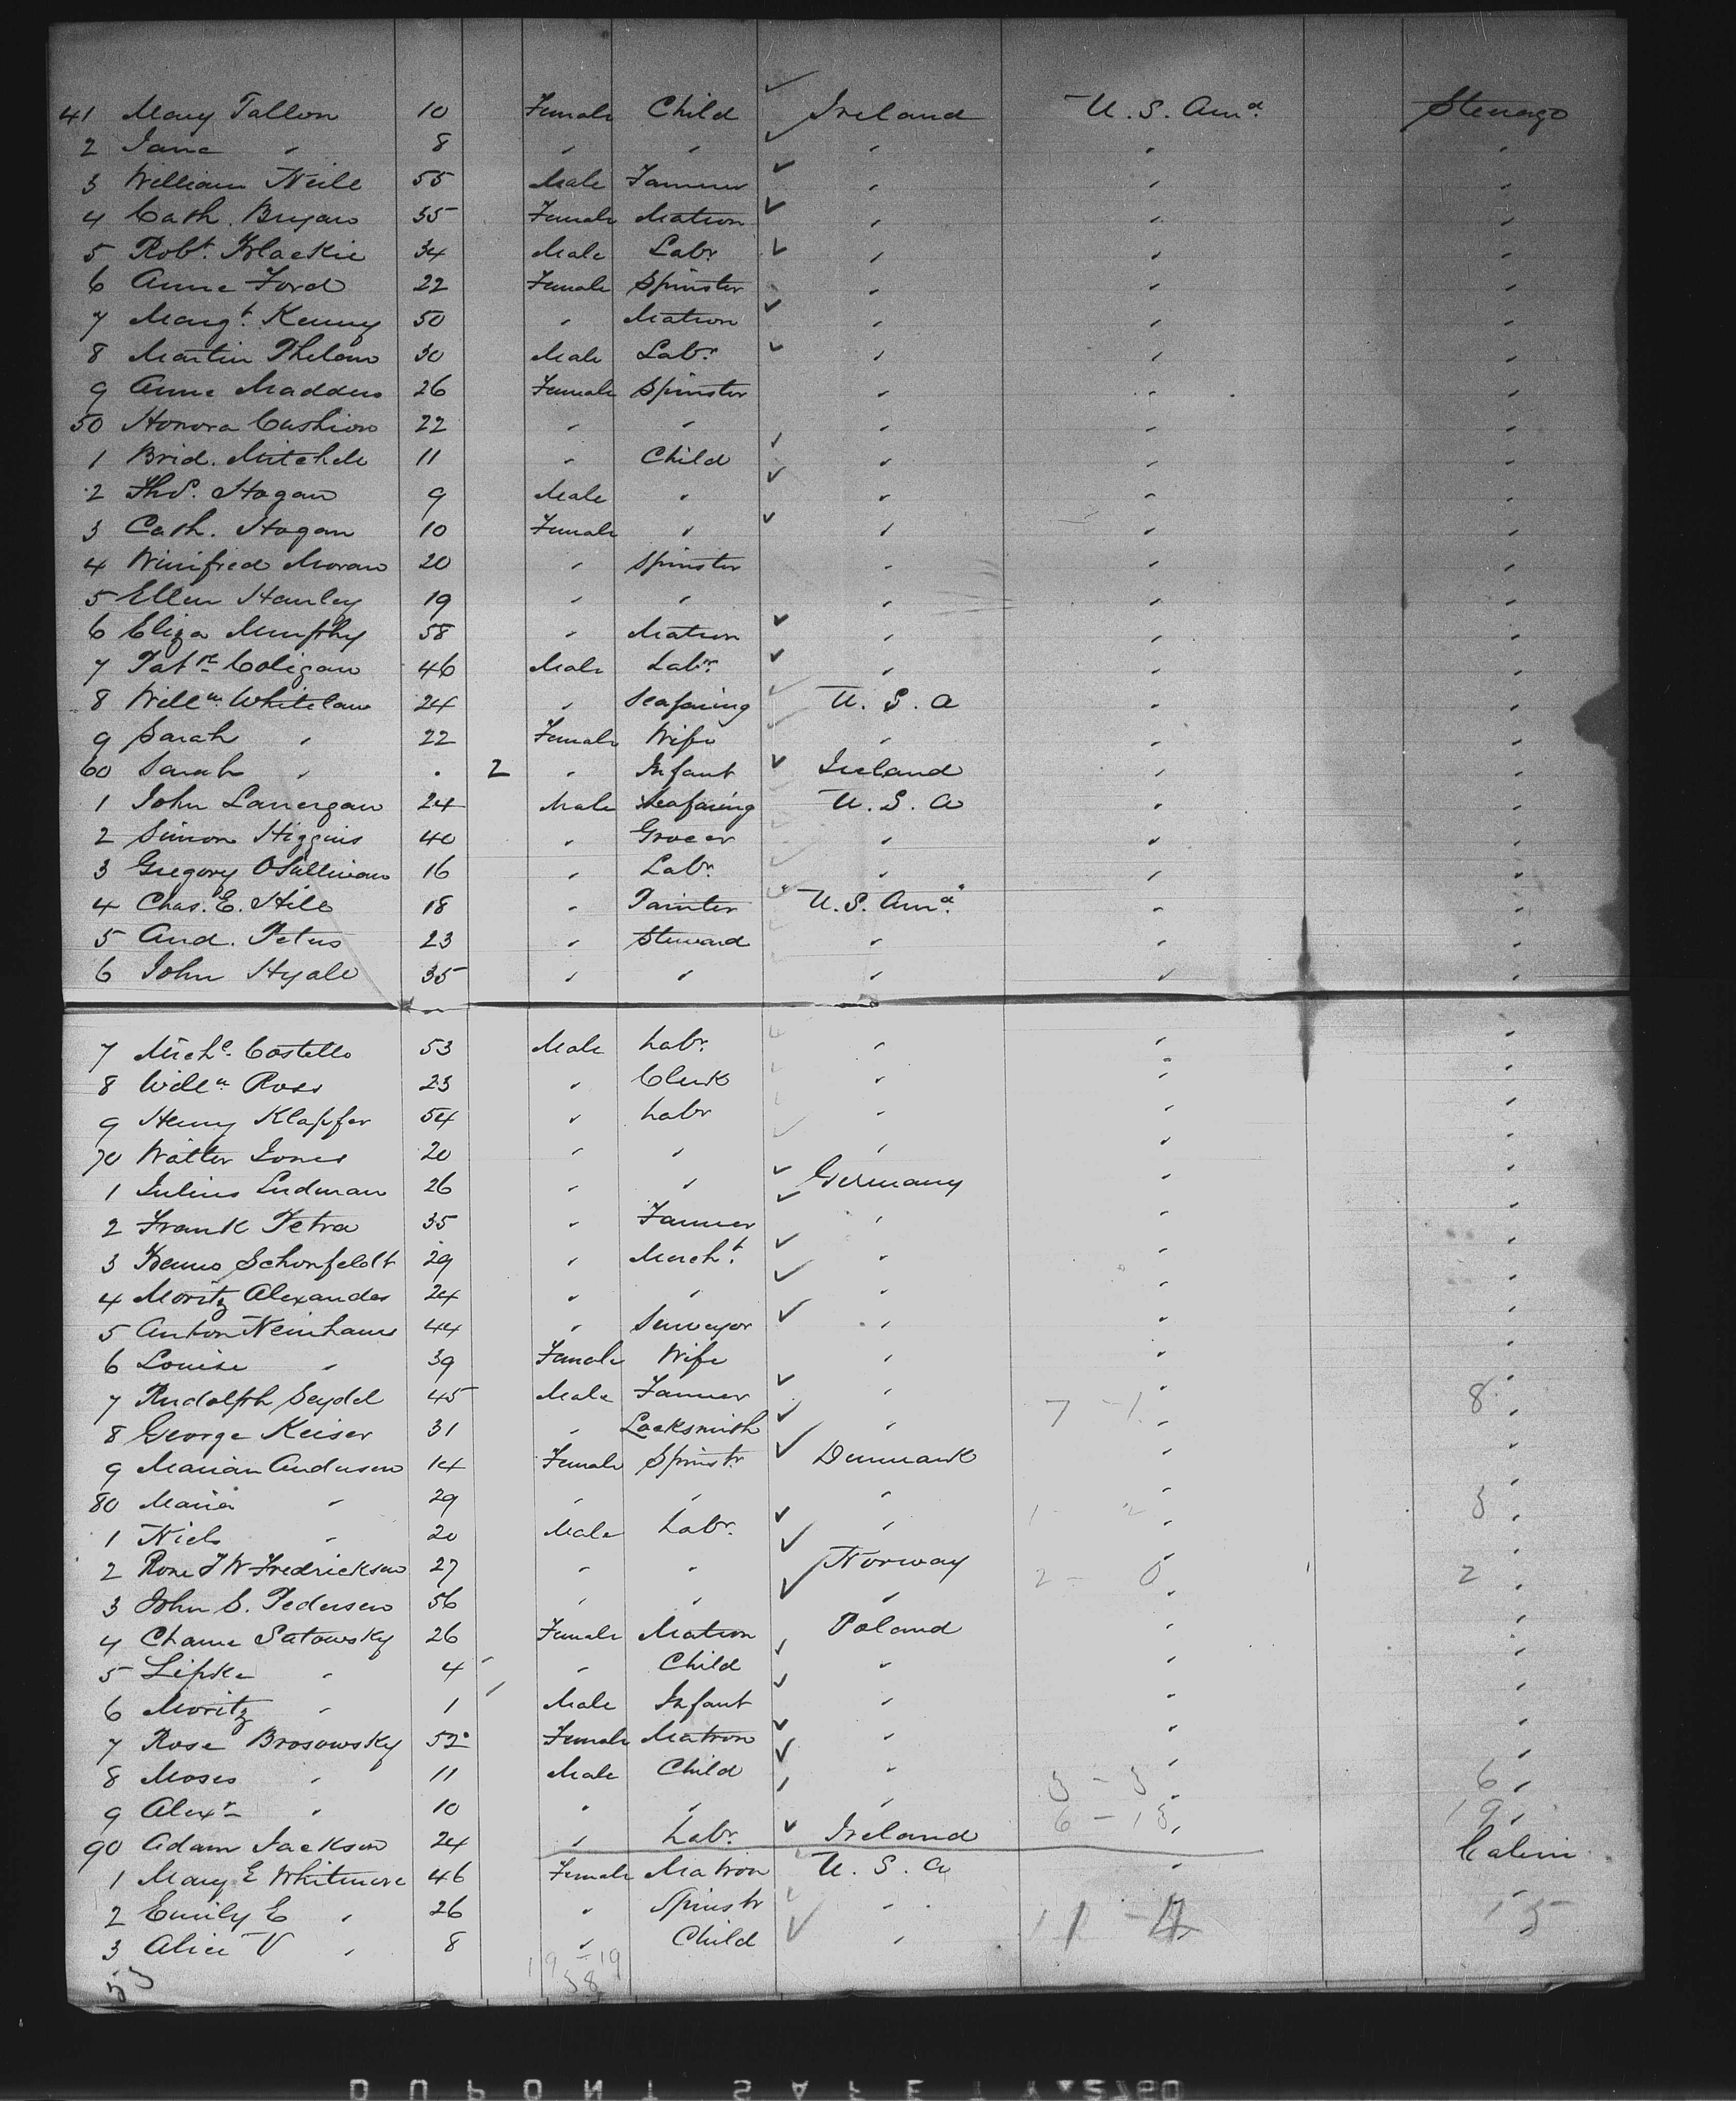 41 Mary Tallon 10 Female Child Ireland U.S. Am^a. Steerage
2 Jane " 8 " " " " "
3 William Neill 55 Male Farmer " " "
4 Cath. Bryan 35 Female Matron " " "
5 Rob^t. Blackie 34 Male Lab^r. " " "
6 Anne Ford 22 Female Spinster " " "
7 Marg^t. Kenny 50 " Matron " " "
8 Martin Phelan 30 Male Lab^r. " " "
9 Anne Madden 26 Female Spinster " " "
50 Honora Cashion 22 " " " " "
1 Brid. Mitchell 11 " Child " " "
2 Tho^s. Hogan 9 Male " " " "
3 Cath. Hogan 10 Female " " " "
4 Winifred Moran 20 " Spinster " " "
5 Ellen Hanley 19 " " " " "
6 Eliza Murphy 58 " Matron " " "
7 Pat^rk Coligan 46 Male Lab^r. " " "
8 Will^m. Whitelaw 24 " Seafaring U.S.A " "
9 Sarah " 22 Female Wife " " "
60 Sarah " . 2 " Infant Ireland " "
1 John Lanergan 24 Male Seafaring U.S.A " "
2 Simon Higgins 40 " Grocer " " "
3 Gregory OSullivan 16 " Lab^r. " " "
4 Chas. E. Hill 18 " Painter U.S. Am^a. " "
5 And. Peters 23 " Steward " " "
6 John Hyale 35 " " " " "
7 Mich^l. Costello 53 Male Lab^r. " " "
8 Will^m Ross 23 " Clerk " " "
9 Henry Klapfer 54 " Labr " " "
70 Walter Jones 20 " " " " "
1 Julius Ludman 26 " " Germany " "
2 Frank Petra 35 " Farmer " " "
3 Benno Schonfeldt 29 " Merch^t. " " "
4 Moritz Alexander 24 " " " " "
5 Anton Neinhaus 44 " Surveyor " " "
6 Louise " 39 Female Wife " " "
7 Rudolph Seydel 45 Male Farmer " 7 - 1 " 8 "
8 George Keiser 31 " Locksmith " " "
9 Marian Andersen 14 Female Spinstr. Denmark " "
80 Maria " 29 " " " 1 - 2 " 3 "
1 Niels " 20 Male Labr. " " "
2 Rone J W Fredricksen 27 " " Norway 2 - 0 " 2 "
3 John S. Pedersen 56 " " " " "
4 Chame Satowsky 26 Female Matron Poland " "
5 Lipke " 4 " Child " " "
6 Moritz " 1 Male Infant " " "
7 Rose Brosowsky 52 Female Matron " " "
8 Moses " 11 Male Child " " "
9 Alex^r " 10 " " " 3 - 3 " 6 "
90 Adam Jackson 24 " Labr. Ireland 6 - 13 " 19 "
1 Mary E Whitmore 46 Female Matron U.S.A " Cabin
2 Emily E " 26 " Spinstr " " "
3 Alice V " 8 " Child " 11 - 4 15
53 19 - 19
38
DUPONT SAFETY 2760